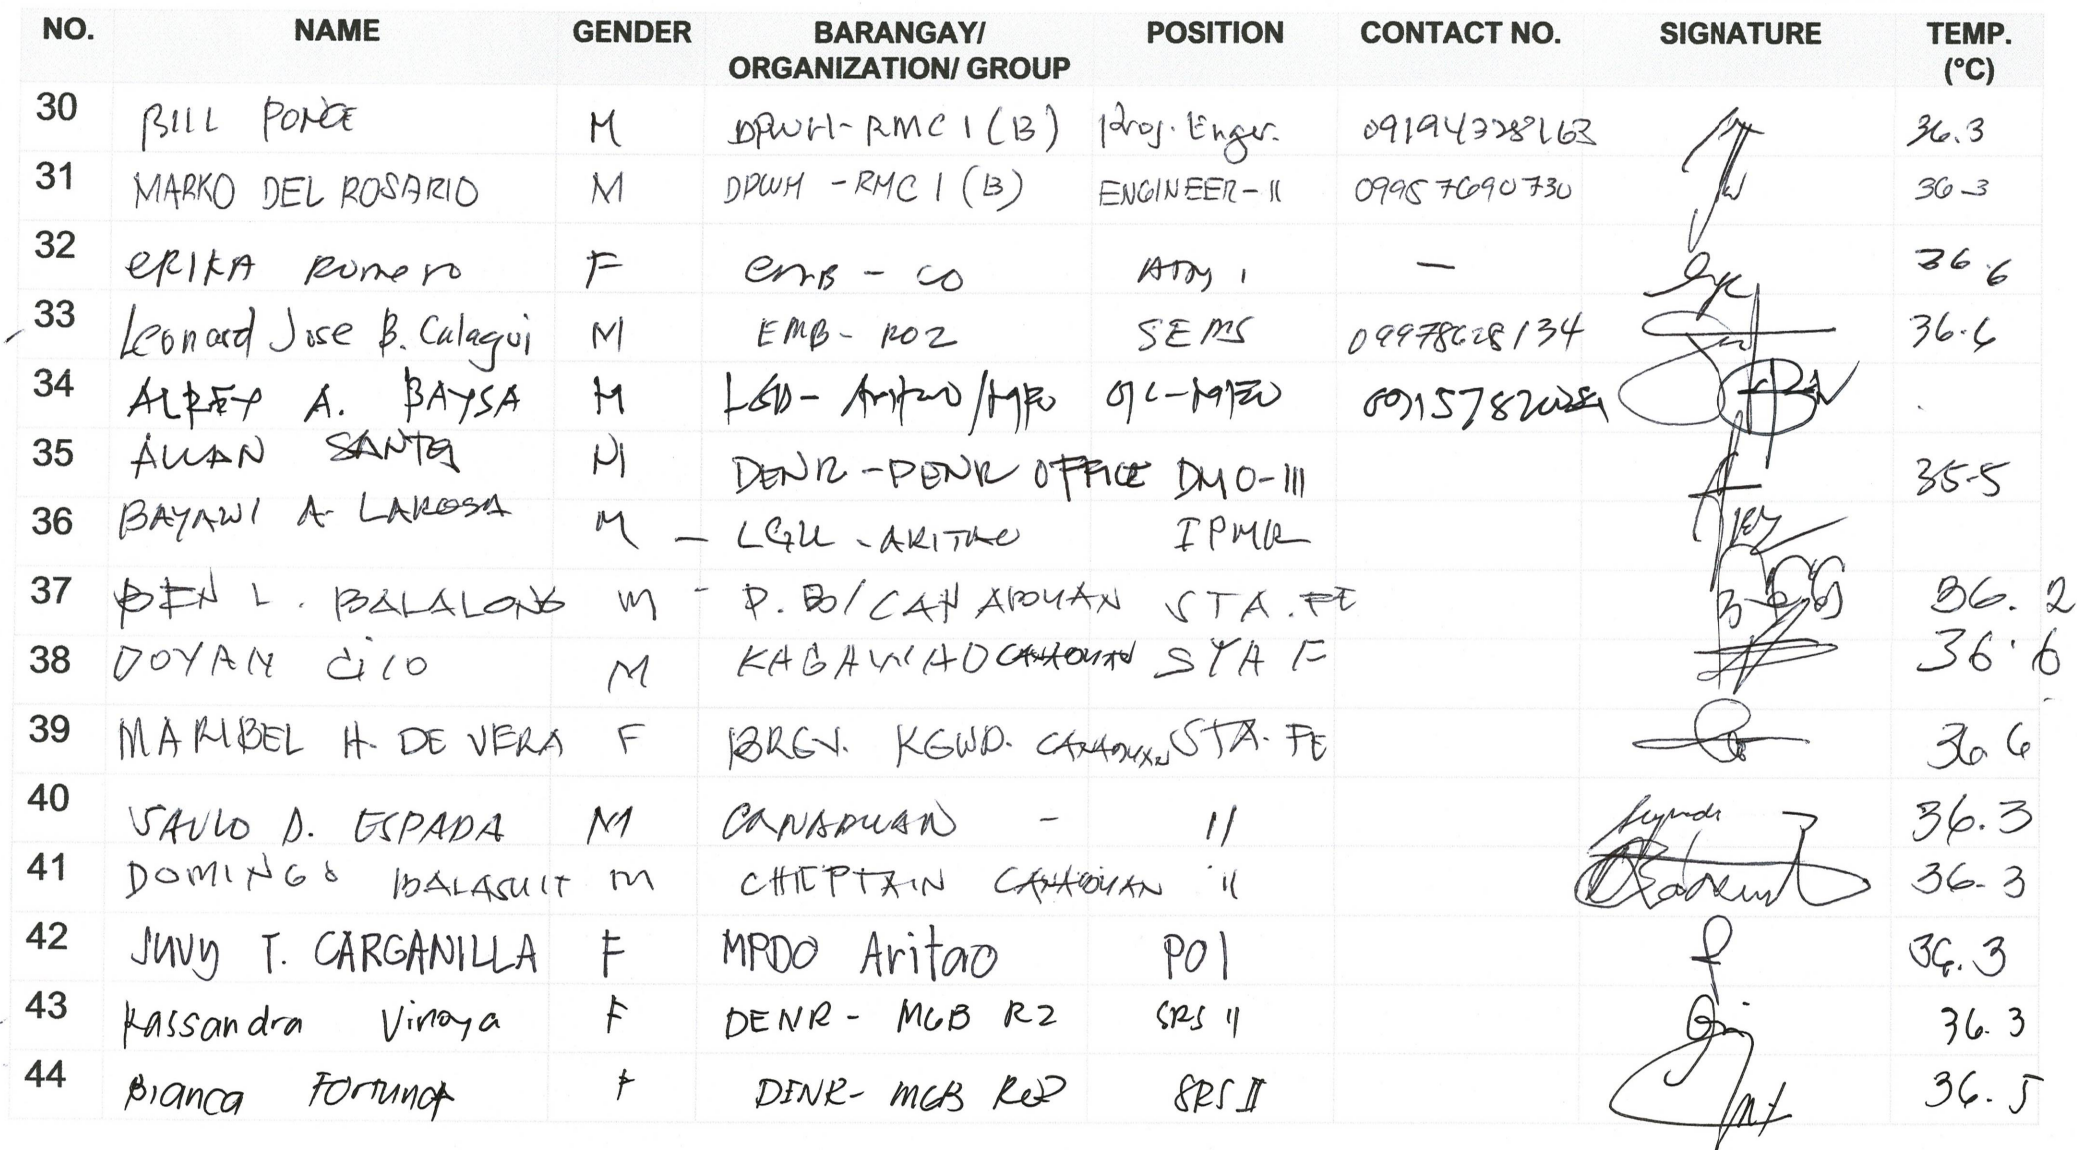 NO. NAME GENDER BARANGAY/ ORGANIZATION/ GROUP POSITION CONTACT NO. SIGNATURE TEMP. (°C)
30 BILL PONCE M DPWH-RMC I (B) Proj. Engr. 09194328163 36.3
31 MARKO DEL ROSARIO M DPWH - RMC I (B) ENGINEER-II 09957690730 36-3
32 ERIKA Romero F EMB - CO — 36.6
33 Leonard Jose B. Calagui M EMB- R02 SEMS 09978628134 36.6
34 ALREY A. BAYSA M LGU- Aritao/MEO OIC-MEO
35 ALLAN SANTOS M DENR-PENR OFFICE DMO-III 35-5
36 BAYANI A. LAROSA M - LGU - ARITAO IPMR
37 BEN L. BALALONG M - P.B/CANABUAN STA. FE 36.2
38 DOYAN CiLO M KAGAWAD CANABUAN STA F 36.6
39 MARIBEL H. DE VERA F BRGY. KGWD. CANABUAN STA. FE 36.6
40 SAULO D. ESPADA M CANABUAN - 11 36.3
41 DOMINGO BALASUIT M CHIEPTAIN CANABUAN 11 36-3
42 JUVY T. CARGANILLA F MPDO Aritao PO1 36.3
43 Kassandra Vinoya F DENR- MGB R2 SRS II 36.3
44 Bianca Fortuna F DENR- MGB R02 SRS II 36.5